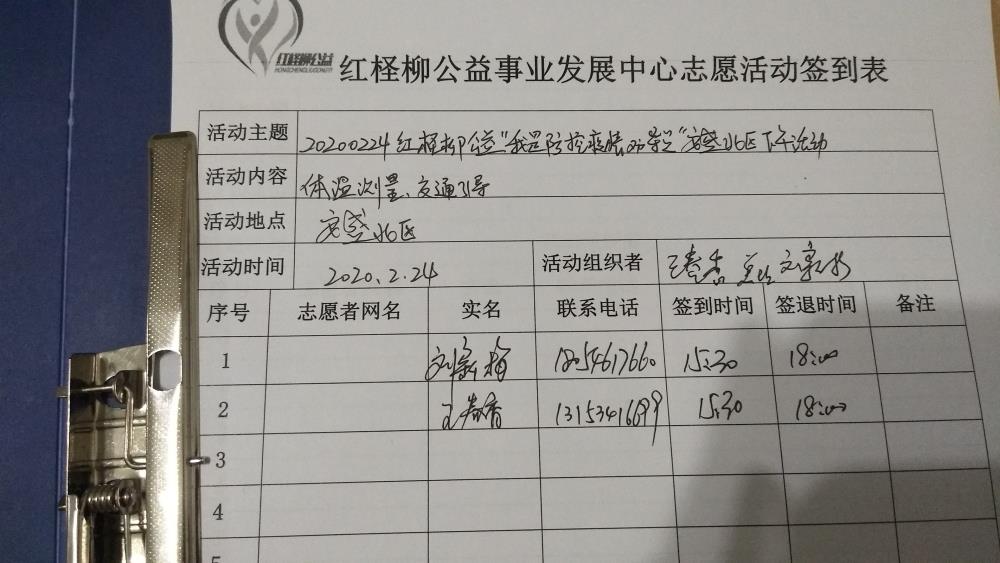 红柽柳公益
红柽柳公益事业发展中心志愿活动签到表
活动主题 20200224红柽柳公益"我是防控疫情 安盛北区下午活动
活动内容 体温测量、交通引导
活动地点 安盛北区
活动时间 2020.2.24 活动组织者 王春香
序号 志愿者网名 实名 联系电话 签到时间 签退时间 备注
1 15:30 18:00
2 王春香 13153416699 15:30 18:00
3
4
5